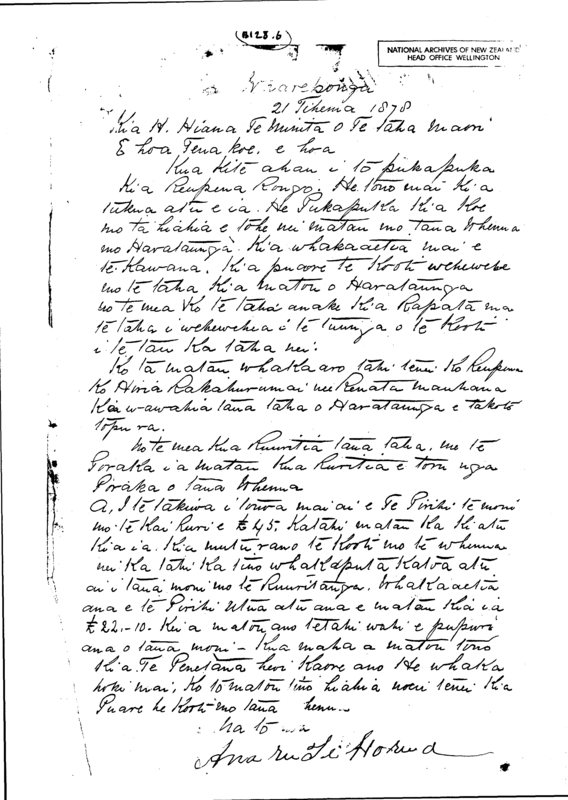 B128.6
NATIONAL ARCHIVES OF NEW ZEALAND
HEAD OFFICE WELLINGTON
21 Tihema 1878
Kia H. Hiana Te Minita o Te taha maori
E hoa Tena koe, e hoa
Kua Kite ahau i tō pukapuka
Kia Reupena Rongo. He tono mai kia
tukua atu e ia. He Pukapuka Kia Koe
mo ta hiahia e tohe nei matau mo tana Whenua
mo Harataunga. Kia whakaaetia mai e
te Kawana. Kia puare te Kooti wehewehe
mo te taha Kia matou o Harataunga
no te mea Ko te taha anake Kia Rapata ma
te taha i wehewehea i te tuunga o te Kooti
i te tau Ka taha nei.
Ko ta matau whakaaro tahi tenei Ko Reupena
Ko Hiria Rakahurumai nei Renata mauhana
Kia wawahia taua taha o Harataunga e takoto
topu ra.
No te mea Kua Ruuritia taua taha. me te
Poraka i a matau Kua Ruritia e toru nga
Piraka o taua Whenua
A, I te takiwa i touwa mai ai e Te Pirihi te moni
mo te Kai Ruri e £45. Katahi matau Ka Ki atu
Kia ia. Kia mutu rano te Kooti mo te whenua
nei Ka tahi Ka tino whakaputa Katoa atu
ai i taua moni mo te Ruuritanga. Whakaaetia
ana e te Pirihi Utua atu ana e matau Kia ia
£22.-10. Kei a matou ano tetahi wahi e pupuri
ana o taua moni - Kua maha a matou tono
Kia Te Penetana heoi Kaore ano He whaka
hoki mai, Ko to matou tino hiahia noeu tenei Kia
Puare he Kooti mo taua henu
Na tō